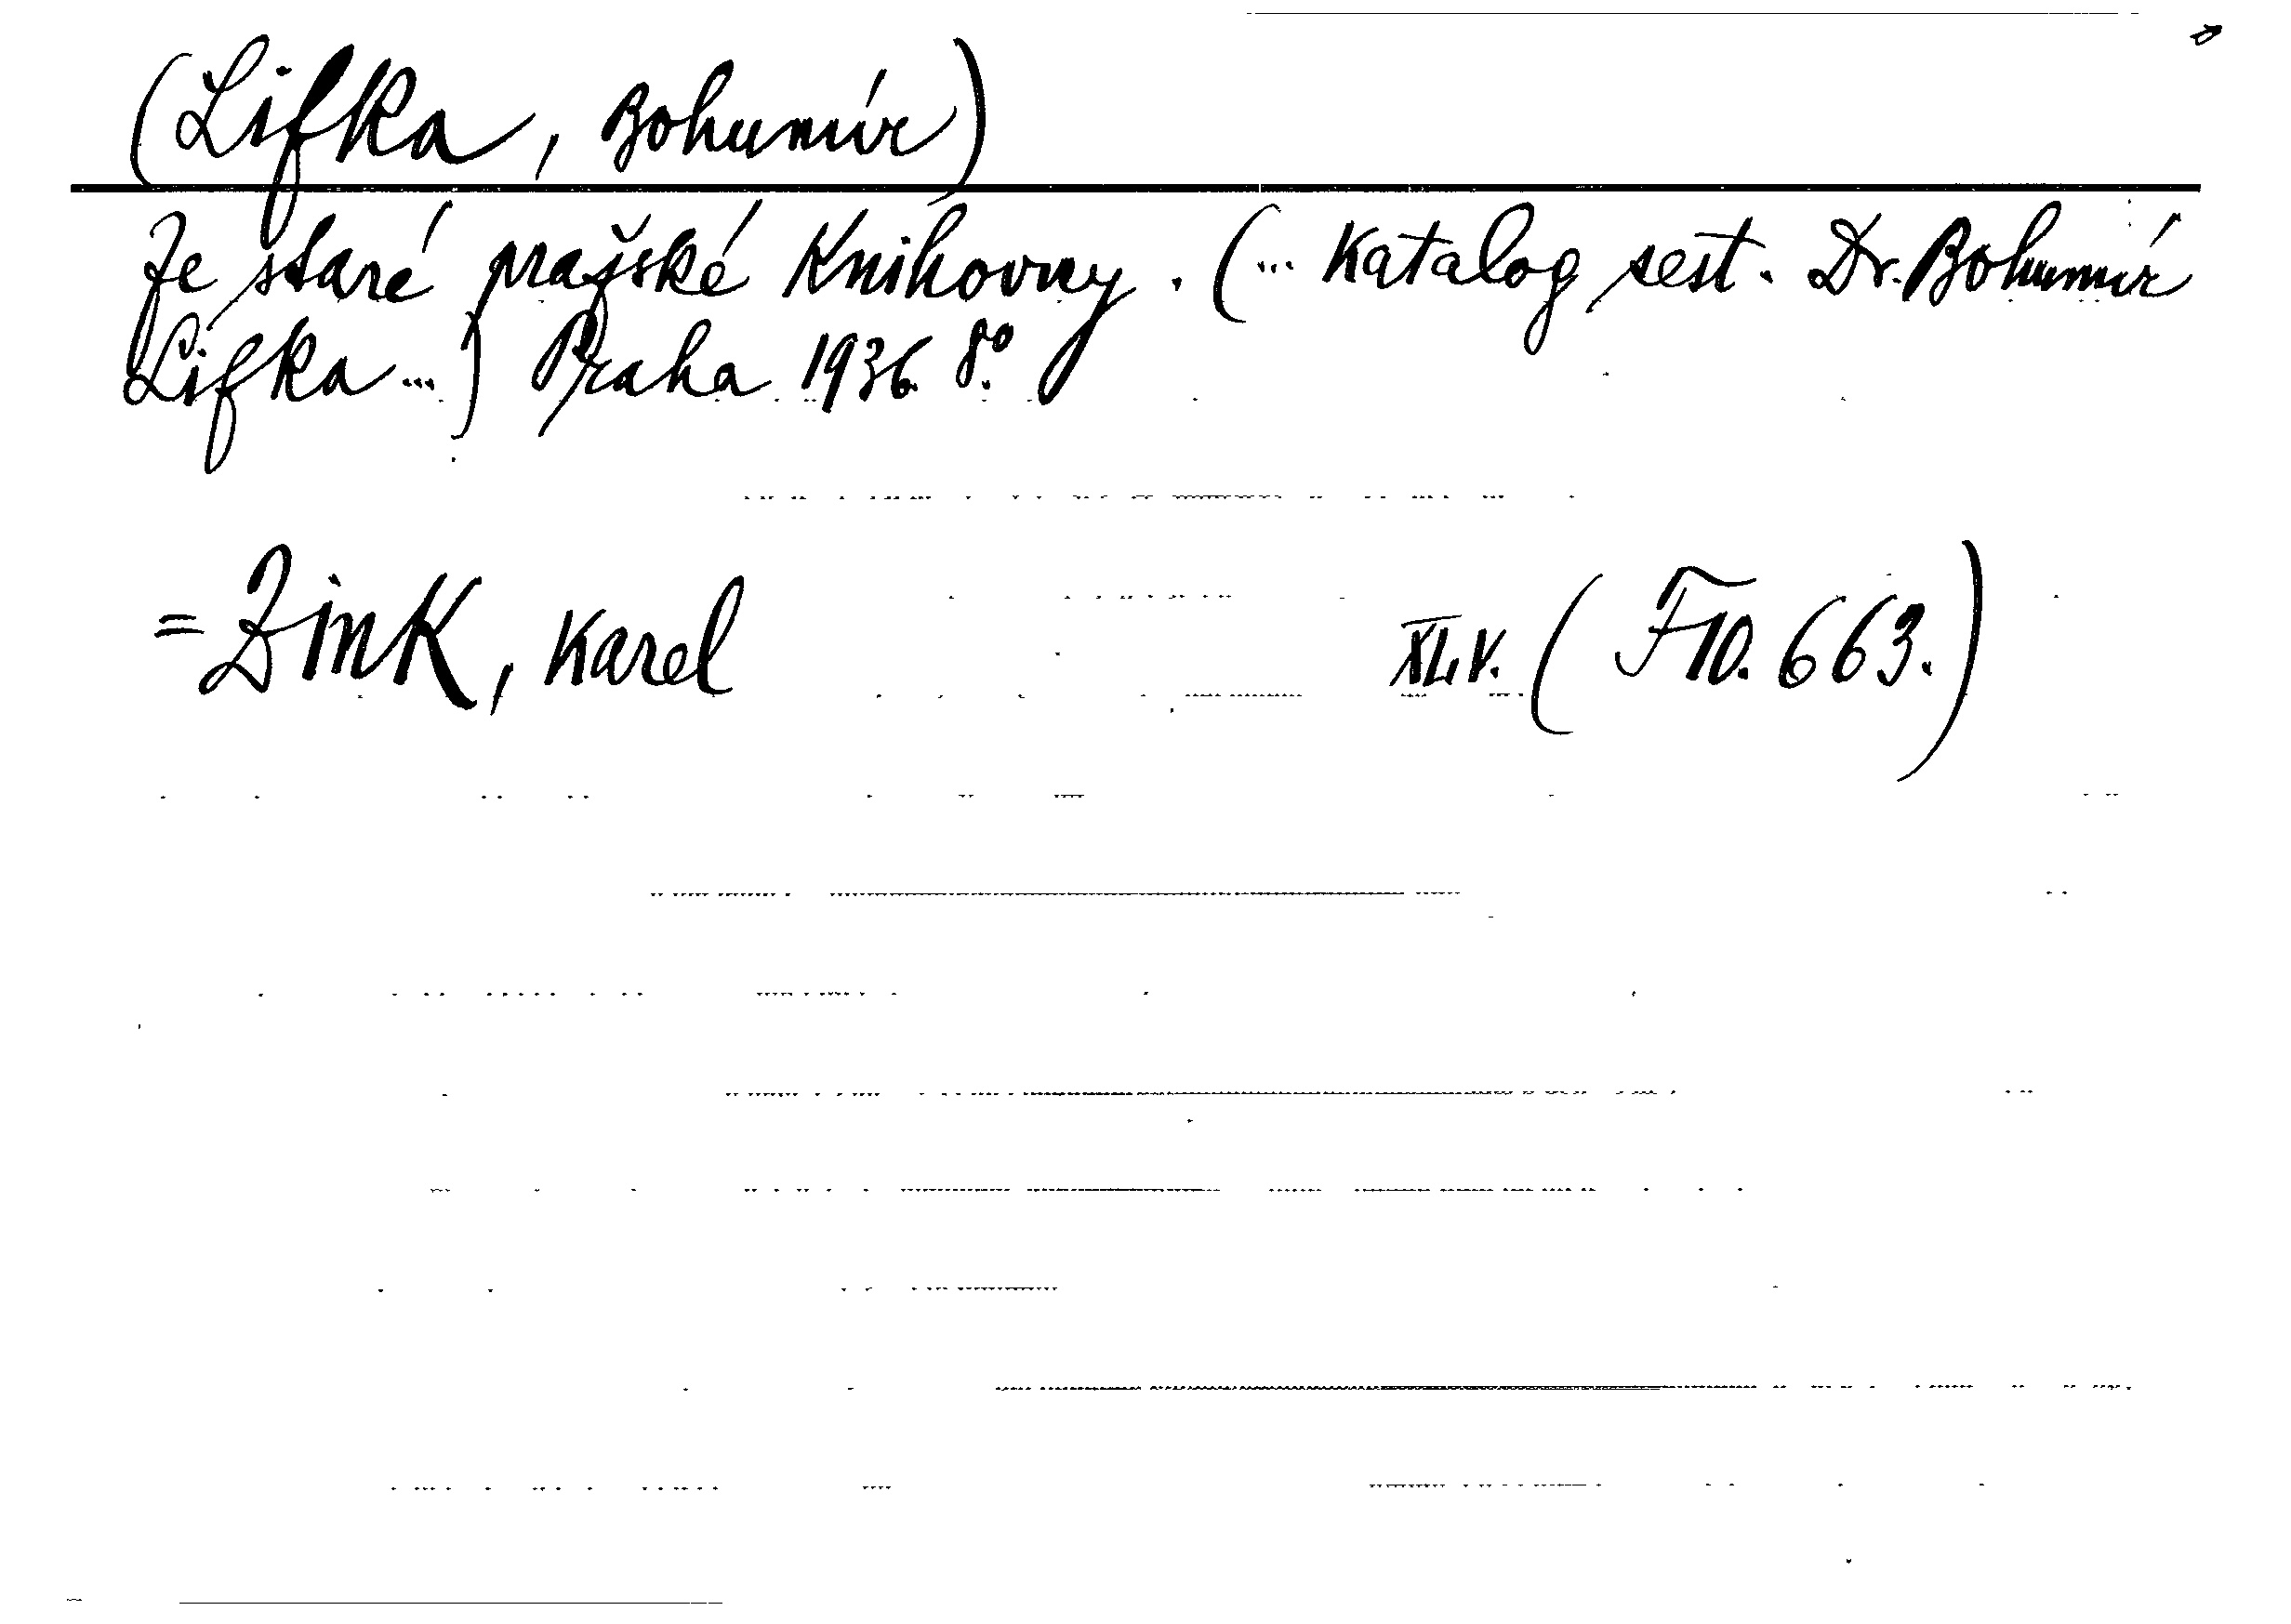 (Lifka, Bohumír)
Ze staré pražské knihovny. (... Katalog sest. Dr. Bohumír
Lifka ...) Praha 1936. 8°.
= Zink, Karel
(F10.663.)